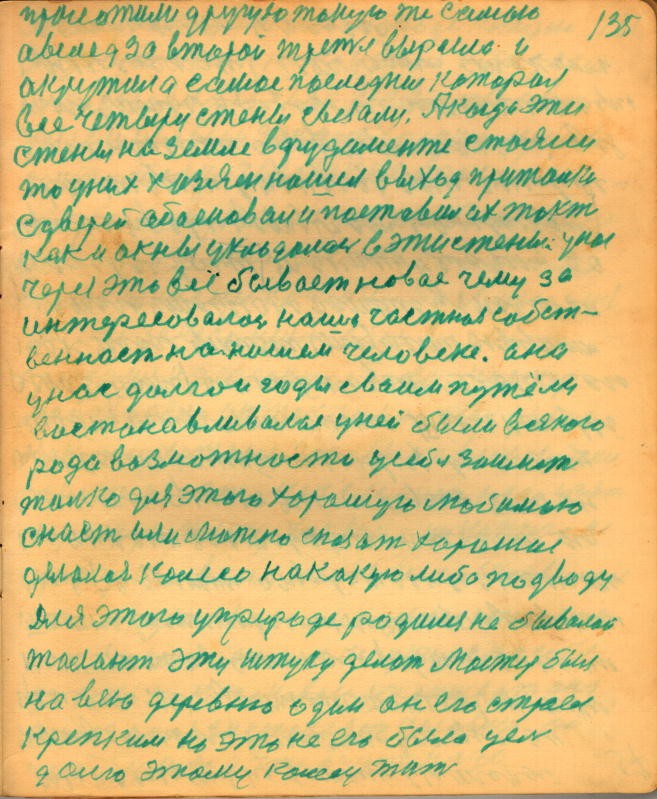 135
проложили другую такую же самою
а вслед за второй третья выросла и
акрутила самое последния которая
все четыри стены связали. А когда эти
стены на земле в фудаменте стояли
то у них хазяен нашел выход притолки
с дверей абасновал и поставил их так
как и акны укладалась в эти стены. у нас
через это всё бывает новае чему за
интересовалась наша частная собст-
веннаст на нашем человеке. она
у нас долгои годы сваим путём
востанавливалас у ней были всякого
рода возможности у себя
толко для этого харошую любимою
снаст или можно сказат харошае
делалас колесо на какую либо подводу
Для этого у природе родился не бывалай
талант эту штуку делат Мастер был
на всю деревню один он его строел
крепким но это не его была цел
долго этому колесу жит